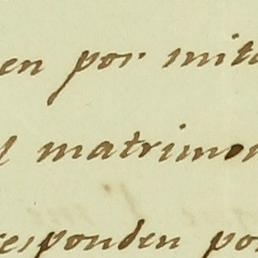 en por mita
l matrimon
responden po